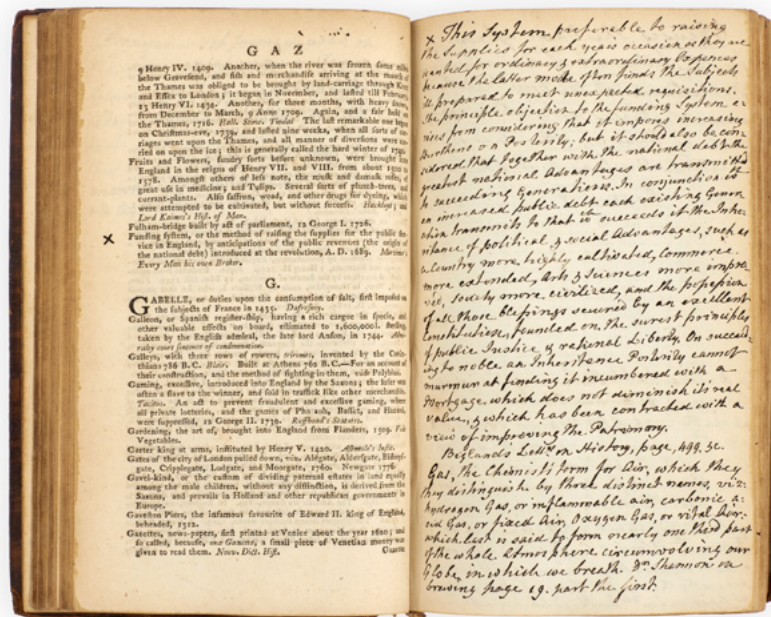 G A Z
9 Henry IV. 1409. Another, when the river was frozen some miles
below Gravesend, and fish and merchandise arriving at the mouth of
the Thames was obliged to be brought by land-carriage through Kent
and Essex to London; it began in November, and lasted till February,
13 Henry VI. 1434. Another, for three months, with heavy snow,
from December to March, 9 Anne 1709. Again, and a fair held on
the Thames, 1716. Hall. Stow. Tindal The last remarkable one began
on Christmas-eve, 1739, and lasted nine weeks, when all sorts of car-
riages went upon the Thames, and all manner of diversions were car-
ried on upon the ice; this is generally called the hard winter of 1740.
Fruits and Flowers, sundry sorts before unknown, were brought into
England in the reigns of Henry VII. and VIII. from about 1500 to
1578. Amongst others of less note, the musk and damask roses, of
great use in medicine; and Tulips. Several sorts of plumb-trees, and
currant-plants. Also saffron, woad, and other drugs for dyeing, which
were attempted to be cultivated, but without success. Hackluyt; and
Lord Kaimes's Hist. of Man.
Fulham-bridge built by act of parliament, 12 George I. 1726.
× Funding system, or the method of raising the supplies for the public ser-
vice in England, by anticipations of the public revenues (the origin of
the national debt) introduced at the revolution, A. D. 1689. Mortimer's
Every Man his own Broker.
G.
GABELLE, or duties upon the consumption of salt, first imposed on
the subjects of France in 1435. Dufresnoy.
Galleon, or Spanish register-ship, having a rich cargoe in specie, and
other valuable effects on board, estimated to 1,600,000l. sterling,
taken by the English admiral, the late lord Anson, in 1744. Admi-
ralty court sentence of condemnation.
Galleys, with three rows of rowers, triremes, invented by the Corin-
thians 786 B.C. Blair. Built at Athens 762 B.C.—For an account of
their construction, and the method of fighting in them, vide Polybius.
Gaming, excessive, introduced into England by the Saxons; the loser was
often a slave to the winner, and sold in traffick like other merchandise.
Tacitus. An act to prevent fraudulent and excessive gaming, when
all private lotteries, and the games of Pharaoh, Basset, and Hazard,
were suppressed, 12 George II. 1739. Ruffhead's Statutes.
Gardening, the art of, brought into England from Flanders, 1509. For
Vegetables.
Garter king at arms, instituted by Henry V. 1420. Ashmole's Inst.
Gates of the city of London pulled down, viz. Aldgate, Aldersgate, Bishops-
gate, Cripplegate, Ludgate, and Moorgate, 1760. Newgate 1776.
Gavel-kind, or the custom of dividing paternal estates in land equally
among the male children, without any distinction, is derived from the
Saxons, and prevails in Holland and other republican governments in
Europe.
Gaveston Piers, the infamous favourite of Edward II. king of England,
beheaded, 1312.
Gazettes, news-papers, first printed at Venice about the year 1620; and
so called, because, una Gazetta, a small piece of Venetian money was
given to read them. Nouv. Dict. Hist.
× This System preferable to raising
the Supplies for each years occasion as they are
wanted for ordinary & extraordinary Expences
because the latter mode often finds the Subjects
ill prepared to meet unexpected requisitions.
The principle objection to the funding System a-
rises from considering that it imposes increasing
burthens on Posterity; but it should also be con-
sidered that together with the national debt the
greatest national Advantages are transmitted
to succeeding Generations. In conjunction wth
an increased public debt each existing Gener-
ation transmits to that wch succeeds it the Inhe-
ritance of political & social Advantages, such as
a Country more highly cultivated, Commerce
more extended, Arts & Sciences more impro-
ved, Society more civilized, and the possession
of all those blessings secured by an excellent
Constitution, founded on the surest principles
of public Justice & rational Liberty. On succeed-
ing to noble an Inheritance Posterity cannot
murmur at finding it incumbered with a
Mortgage which does not diminish its real
value, & which has been contracted with a
view of improving the Patrimony.
Biglands Letters on History, page, 499. &c.
Gas, the Chemists term for Air, which they
they distinguish by three distinct names, viz:
hydrogen Gas, or inflammable air, carbonic a-
cid Gas, or fixed Air, Oxygen Gas, or vital Air.
which last is said to form nearly one third part
of the whole Atmosphere circumvolving our
Globe, in which we breath. Dr. Shannon on
brewing page 19. part the first.